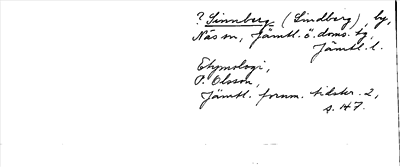 ? Sinnberg (Lindberg), by,
Näs sn, Jämtl. ö. doms. tg,
Jämtl. l.
Etymologi,
P. Olsson,
Jämtl. fornm. tidskr. 2,
s. 147.